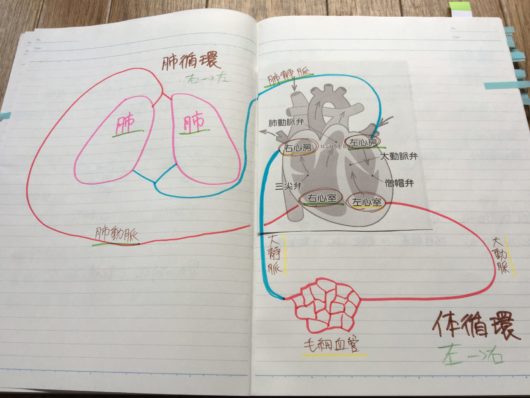 肺循環
右→左
肺
肺
肺動脈
肺静脈
肺動脈弁
右心房
左心房
大動脈弁
三尖弁
僧帽弁
右心室
左心室
大静脈
大動脈
毛細血管
体循環
左→右